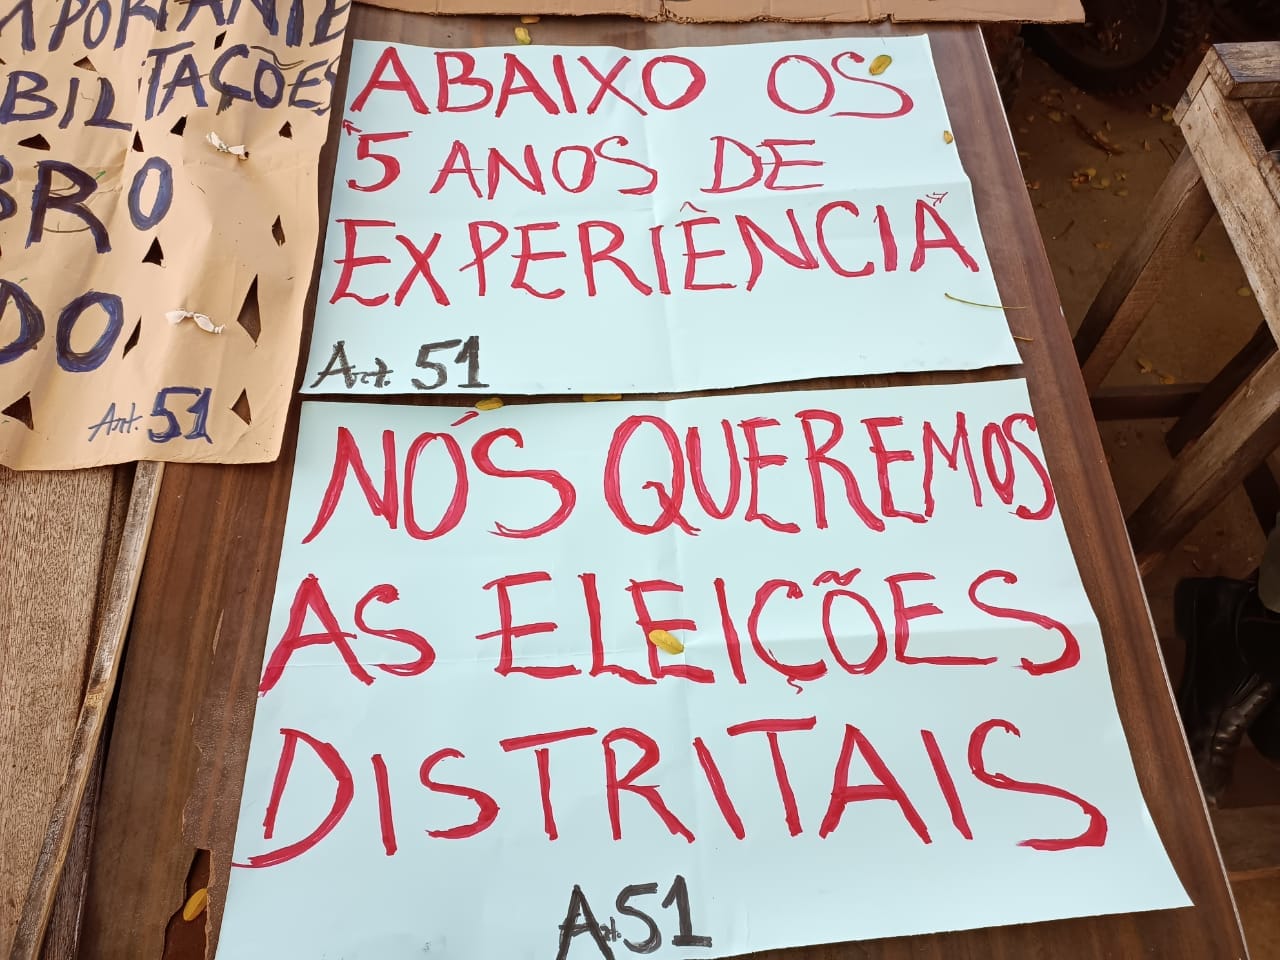 ABAIXO OS
"5 ANOS DE
EXPERIÊNCIA"
Art. 51
NÓS QUEREMOS
AS ELEIÇÕES
DISTRITAIS
Art. 51
MPORTANTE
BILITAÇÕES
BRO
DO
Art. 51